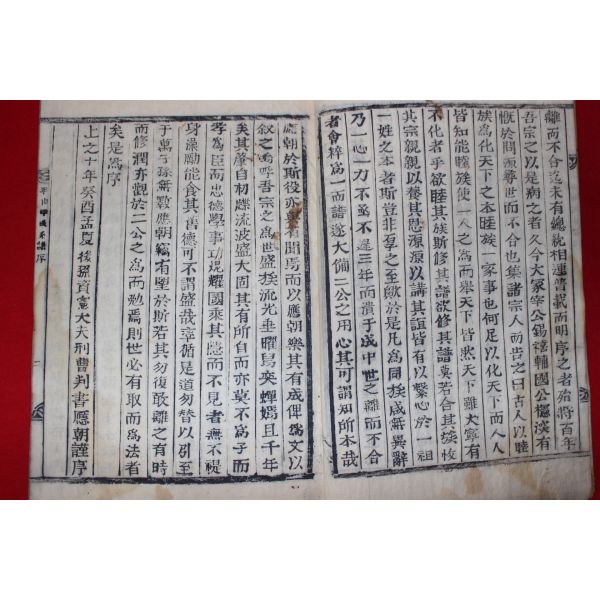 離而不合迄未有總統相連普載而明序之者殆將百年
吾宗之以是病之者久今大冢宰公錫禧輔國公 漢有
慨於同源專世而不合也集諸宗人而告之曰古人以睦
族爲化天下之本睦族一家事也何足以化天下而人人
皆知能睦族使一人之爲而舉天下皆然天下雖大寧有
不化者乎欲睦其族斯修其譜欲修其譜莫若合其族收
其宗親親以養其恩源源以講其誼皆有以繫心於一祖
一姓之本者斯豈非羣之至歟於是凡爲同族咸無異辭
乃一心一力不亟不遲三年而潰于成中世之離而不合
者會稡爲一而譜遂大備二公之用心其可謂知所本哉
應朝於斯役亦與有聞焉而以應朝樂其有成俾爲文以
叙之嗚呼吾宗之爲世盛族流光垂曜舃奕蟬嫣且千年
矣其肇自初應流波盛大固其有所自而亦莫不爲子而
孝爲臣而忠德學事功焜耀國乘其隱而不見者無不褆
身澡勵能食其舊德可不謂盛哉率循是道勿替以引至
于萬子孫無斁應朝竊有望於斯若其勿復敢離之有時
而修潤亦觀於二公之爲而勉焉則世必有取而爲法者
矣是爲序
上之十年癸酉孟夏後孫資憲大夫刑曹判書應朝謹序
譜序